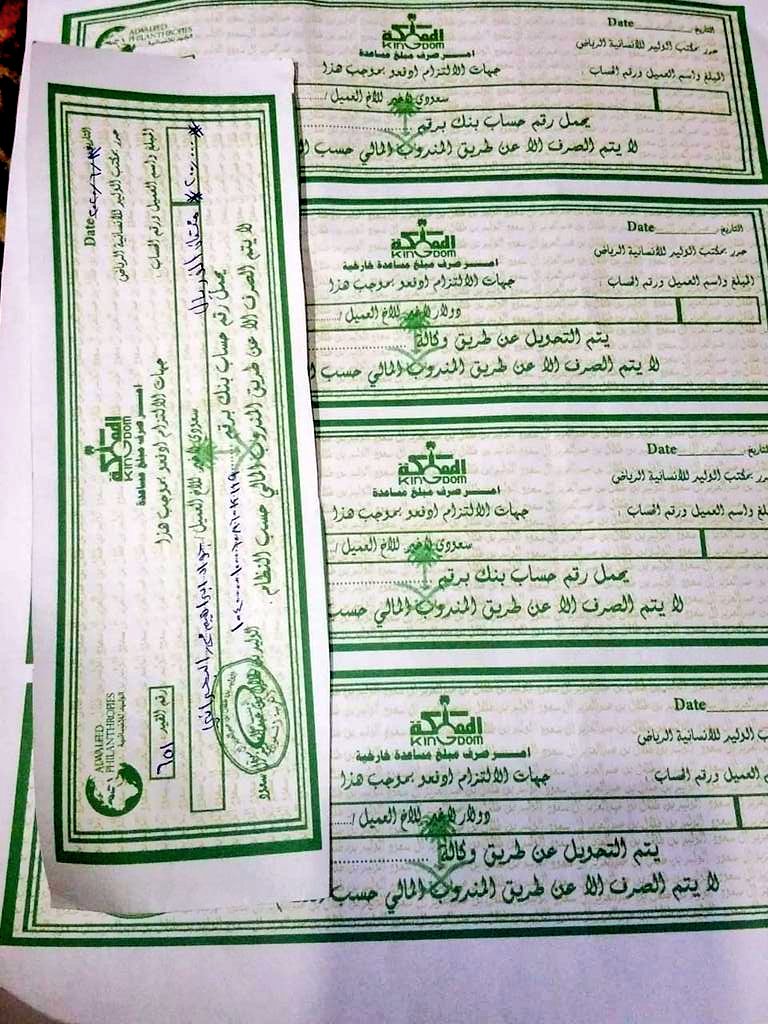 ALWALEED PHILANTHROPIES
الوليد للإنسانية
المملكة
KINGDOM
امـــر صرف مبلغ مساعدة
التاريخ Date
حرر بمكتب الوليد للانسانية الرياض
جهات الالتزام ادفعو بموجب هذا
المبلغ واسم العميل ورقم الحساب :
سعودي لاغير للاخ العميل /
يحمل رقم حساب بنك برقم
لا يتم الصرف الا عن طريق المندوب المالي حسب
المملكة
KINGDOM
امـــر صرف مبلغ مساعدة خارجية
التاريخ Date
حرر بمكتب الوليد للانسانية الرياض
جهات الالتزام ادفعو بموجب هذا
المبلغ واسم العميل ورقم الحساب :
دولار لاغير للاخ العميل /
يتم التحويل عن طريق وكالة
لا يتم الصرف الا عن طريق المندوب المالي حسب
المملكة
KINGDOM
امـــر صرف مبلغ مساعدة
التاريخ Date
حرر بمكتب الوليد للانسانية الرياض
جهات الالتزام ادفعو بموجب هذا
المبلغ واسم العميل ورقم الحساب :
سعودي لاغير للاخ العميل /
يحمل رقم حساب بنك برقم
لا يتم الصرف الا عن طريق المندوب المالي حسب
المملكة
KINGDOM
امـــر صرف مبلغ مساعدة خارجية
Date
الوليد للانسانية الرياض
جهات الالتزام ادفعو بموجب هذا
العميل ورقم الحساب :
دولار لاغير للاخ العميل /
يتم التحويل عن طريق وكالة
لا يتم الصرف الا عن طريق المندوب المالي حسب
ALWALEED PHILANTHROPIES
الوليد للإنسانية
المملكة
KINGDOM
امـــر صرف مبلغ مساعدة
التاريخ Date
حرر بمكتب الوليد للانسانية الرياض
جهات الالتزام ادفعو بموجب هذا
رقم القيد ٦٥١
المبلغ واسم العميل ورقم الحساب :
ريال سعودي لاغير للاخ العميل / جواد ابراهيم
يحمل رقم حساب بنك برقم
لا يتم الصرف الا عن طريق المندوب المالي حسب النظام .